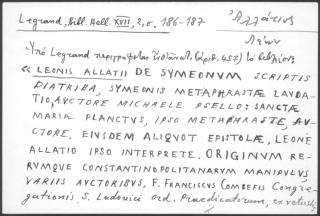 Legrand, bibl. Hell. XVII, 2, σ. 186-187
Ἀλλάτιος
Λέων
Ὑπὸ Legrand περιγράφεται (ἀριθ. 457) τὸ βιβλίον:
« LEONIS ALLATII DE SYMEONUM SCRIPTIS
DIATRIBA, SYMEONIS METAPHRASTÆ LAUDA-
TIO, AUCTORE MICHAELE PSELLO: SANCTÆ
MARIÆ PLANCTUS, IPSO METAPHRASTE, AU-
CTORE. EIUSDEM ALIQUOT EPISTOLÆ, LEONE
ALLATIO IPSO INTERPRETE. ORIGINUM RE-
RUMQUE CONSTANTINOPOLITANARUM MANIPULUS,
VARIIS AUCTORIBUS, F. FRANCISCUS COMBEFIS Congre-
gationis S. Ludovici ord. Praedicatorum, ex vetustis